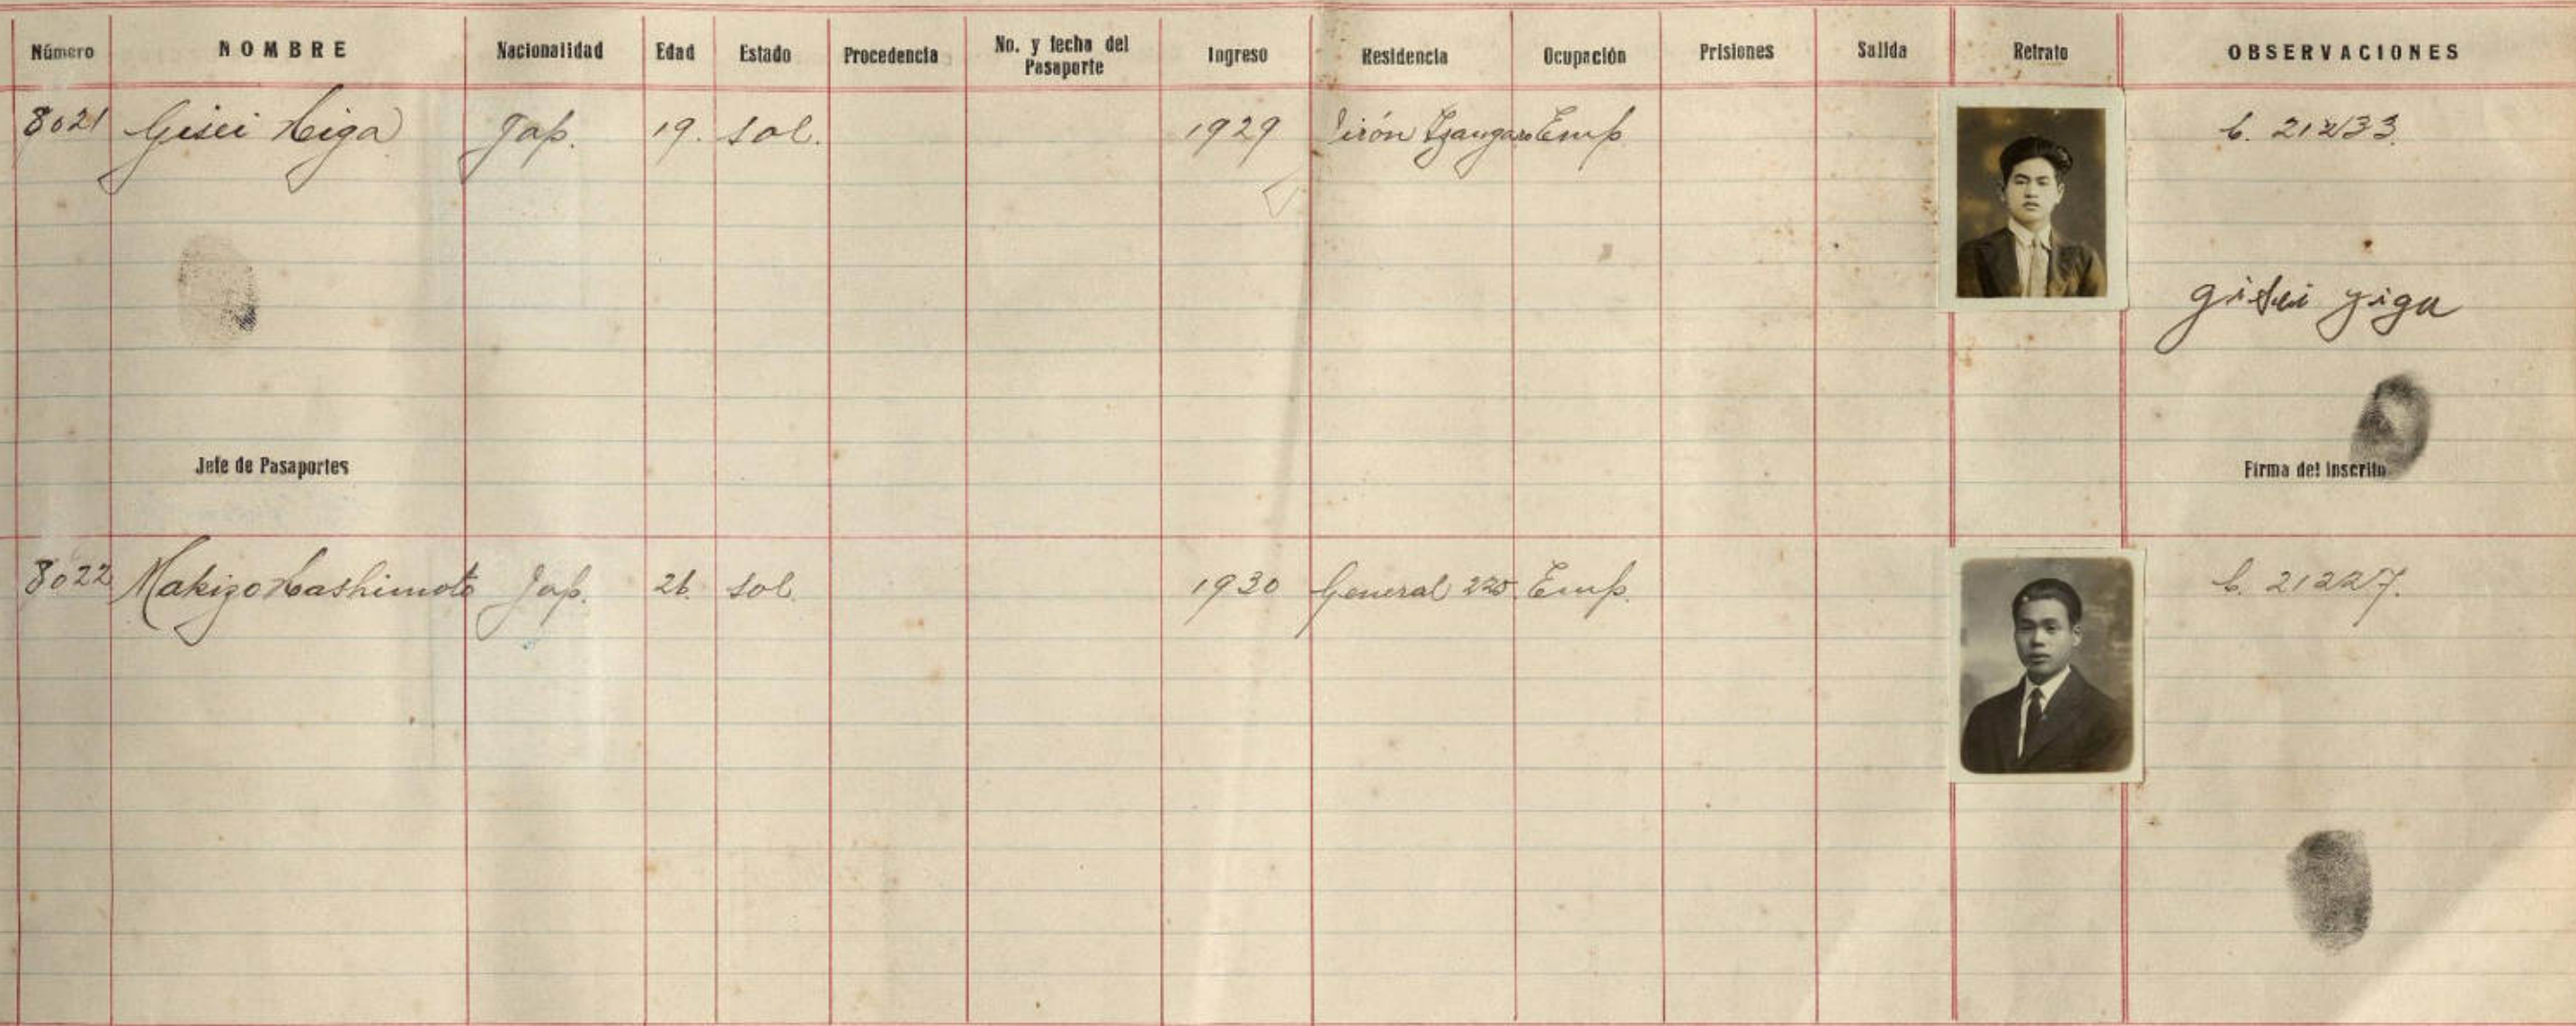 Número NOMBRE Nacionalidad Edad Estado Procedencia No. y fecha del Pasaporte Ingreso Residencia Ocupación Prisiones Salida Retrato OBSERVACIONES
8021 Gisei Higa Jap. 19. sol. 1929 Jirón Azangaro Emp C. 21233.
gisei giga
Jefe de Pasaportes Firma del inscrito
8022 Makizo Hashimoto Jap. sol. 1930 General 220. Emp. C. 21227.